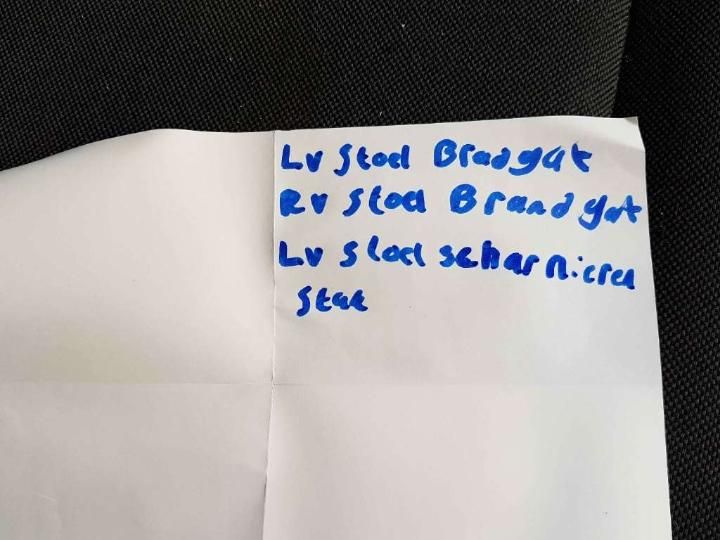 Lv Stoel Bradgat
Rv Stoel Brandgat
Lv Stoel scharnieren
Stuk